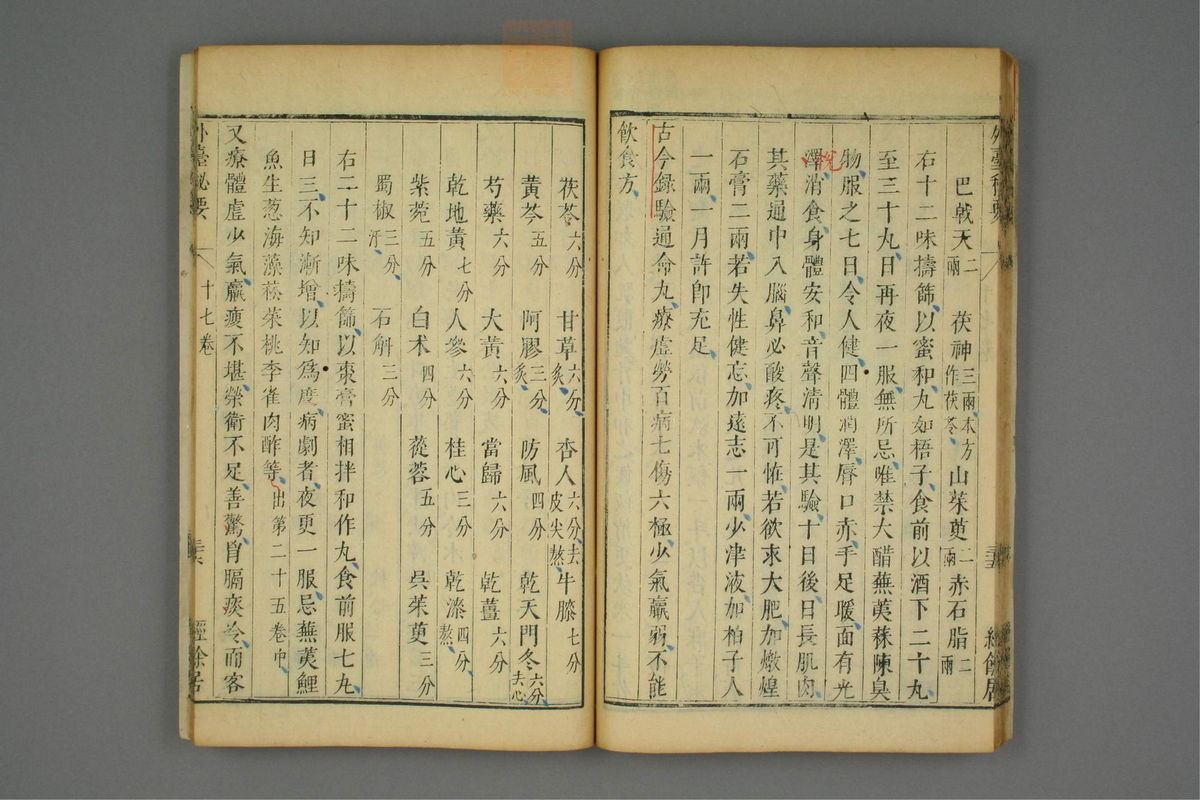 巴戟天二兩 茯神三兩本方作茯苓 山茱萸二兩 赤石脂二兩
右十二味擣篩以蜜和丸如梧子食前以酒下二十丸
至三十丸日再夜一服無所忌唯禁大醋蕪荑蒜陳臭
物服之七日令人健四體潤澤唇口赤手足暖面有光
澤消食身體安和音聲清明是其驗十日後日長肌肉
其藥通中入腦鼻必酸疼不可怪若欲求大肥加燉煌
石膏二兩若失性健忘加遠志一兩少津液加柏子人
一兩一月許即充足
古今錄驗通命丸療虛勞百病七傷六極少氣羸弱不能
飲食方
茯苓六分 甘草六分炙 杏人六分去皮尖熬 牛膝七分
黃芩五分 阿膠三分炙 防風四分 乾天門冬六分去心
芍藥六分 大黃六分 當歸六分 乾薑六分
乾地黃七分 人參六分 桂心三分 乾漆四分熬
紫菀五分 白朮四分 蓯蓉五分 吳茱萸三分
蜀椒三分汗 石斛三分
右二十二味擣篩以棗膏蜜相拌和作丸食前服七丸
日三不知漸增以知為度病劇者夜更一服忌蕪荑鯉
魚生葱海藻菘菜桃李雀肉酢等出第二十五卷中
又療體虛少氣羸瘦不堪榮衛不足善驚胃膈痰冷而客
外臺秘要 十七卷 經餘居